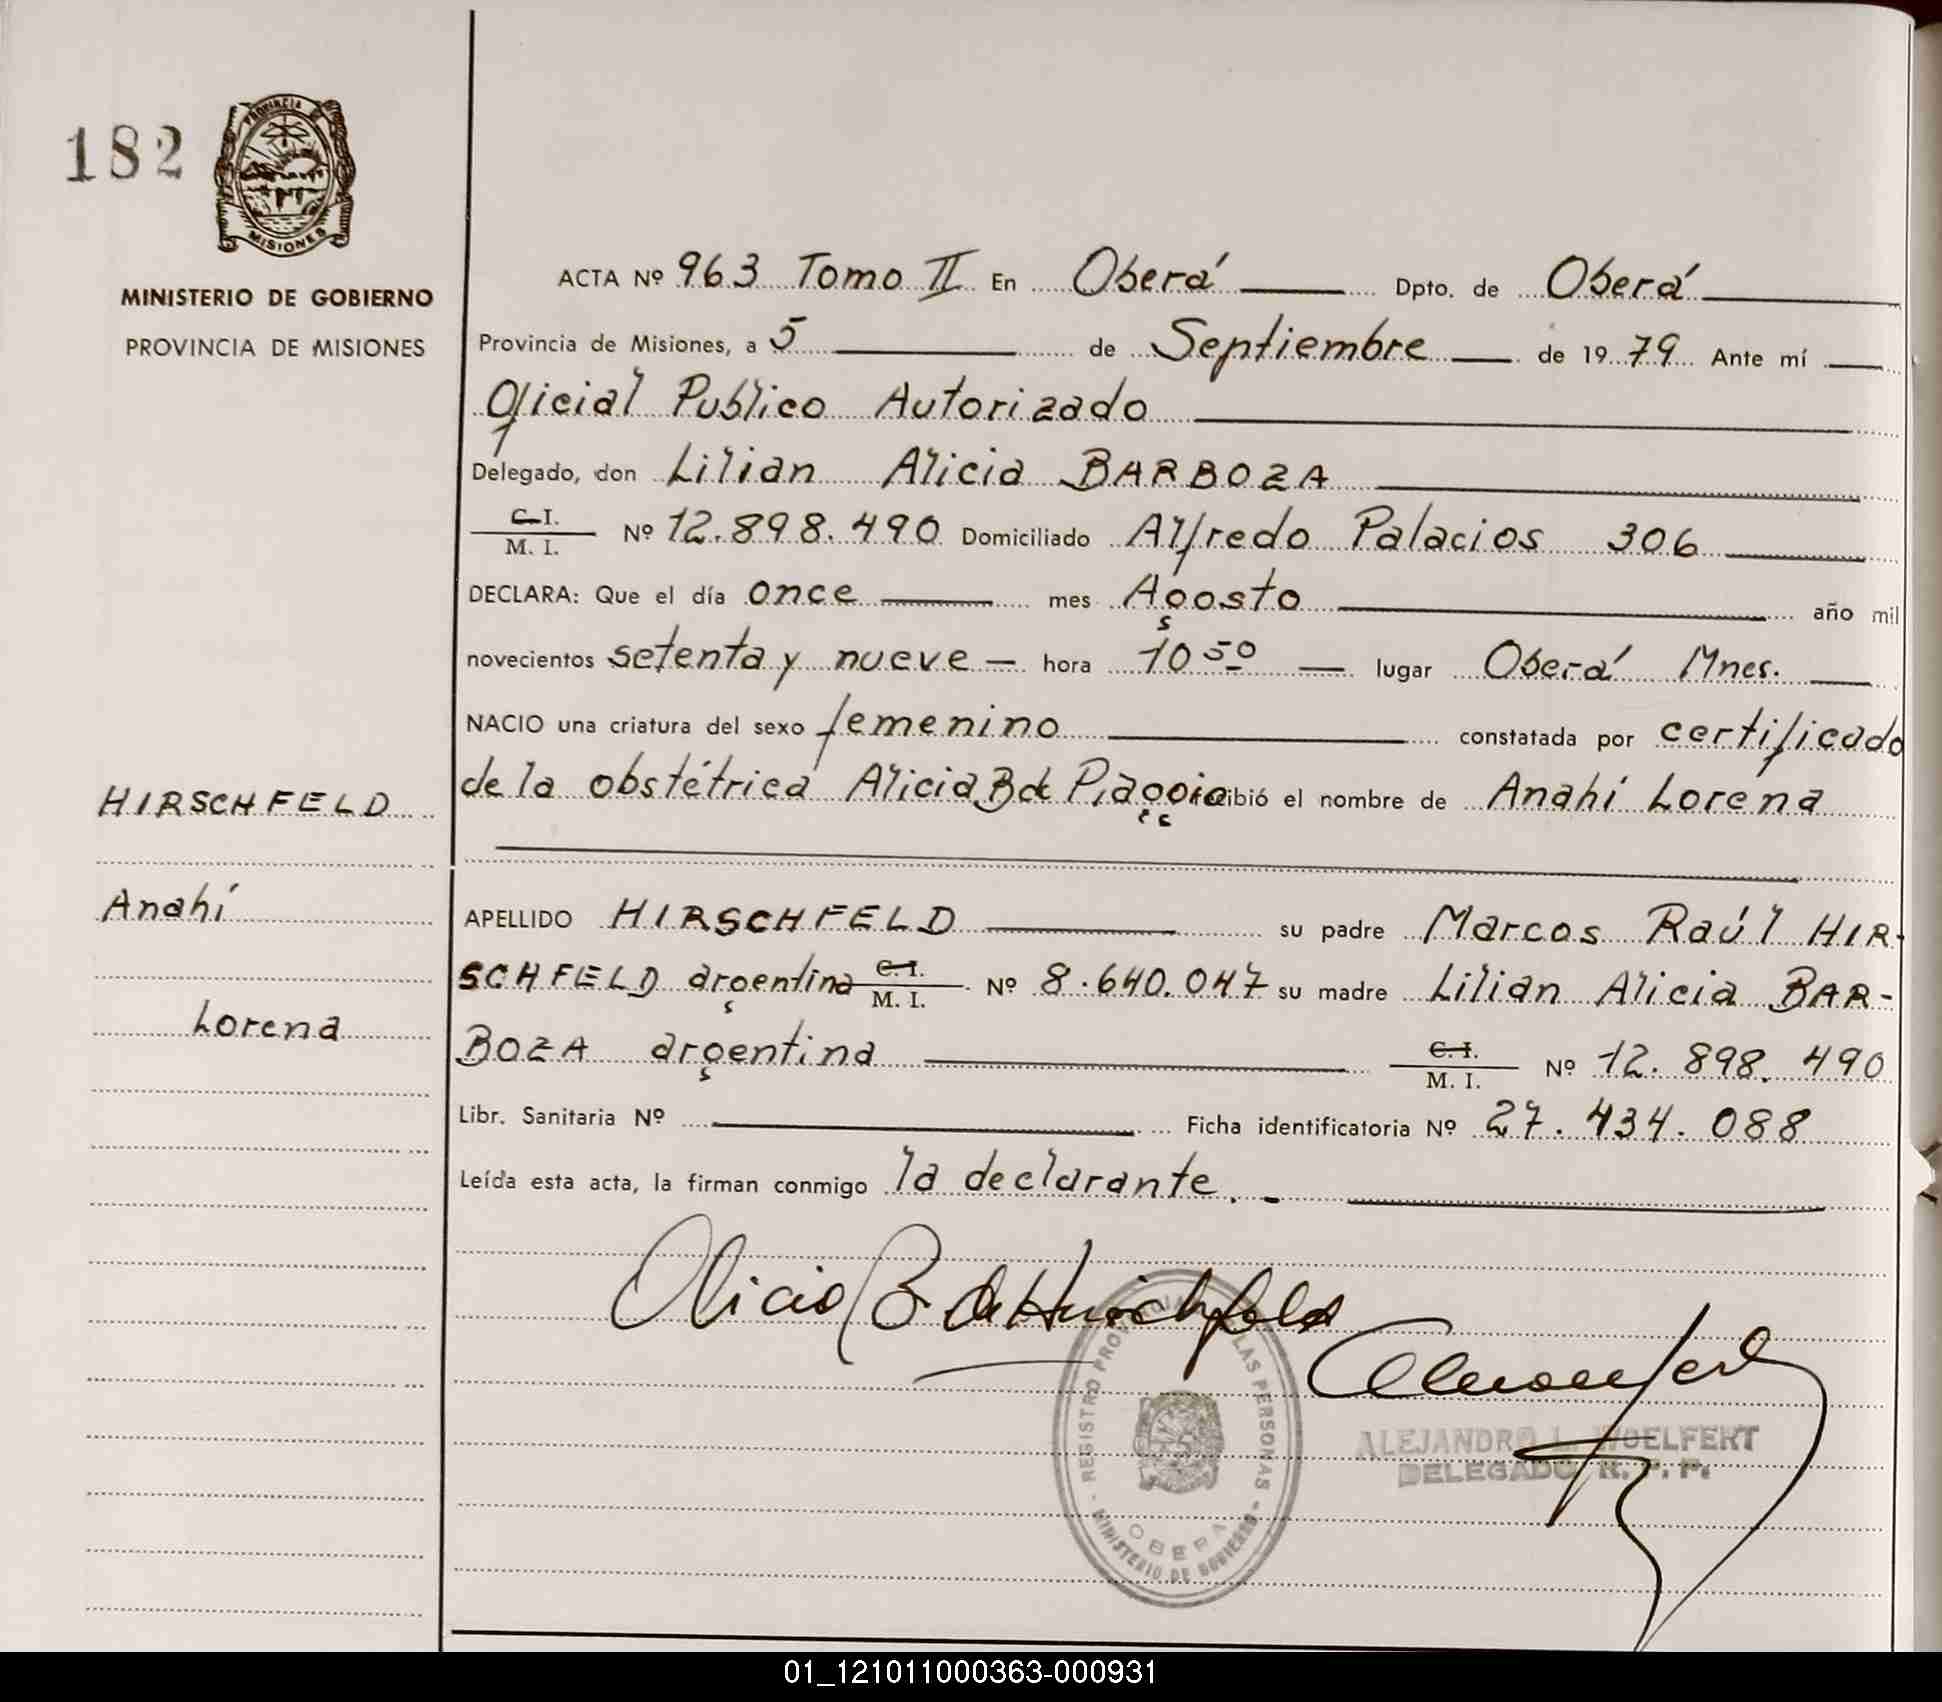 182
PROVINCIA
MISIONES
MINISTERIO DE GOBIERNO
PROVINCIA DE MISIONES
ACTA Nº 963 Tomo II En Oberá Dpto. de Oberá
Provincia de Misiones, a 5 de Septiembre de 1979 Ante mí
Oficial Publico Autorizado
Delegado, don Lilian Alicia BARBOZA
C.I.
M. I. Nº 12.898.490 Domiciliado Alfredo Palacios 306
DECLARA: Que el día once mes Agosto año mil
novecientos setenta y nueve – hora 10 50 lugar Oberá Mnes.
NACIO una criatura del sexo femenino constatada por certificado
de la obstétrica Alicia B de Piaggio recibió el nombre de Anahí Lorena
HIRSCHFELD
Anahí
Lorena
APELLIDO HIRSCHFELD su padre Marcos Raúl HIR-
SCHFELD argentina C.I. M. I. Nº 8.640.047 su madre Lilian Alicia BAR-
BOZA argentina C.I. M. I. Nº 12.898.490
Libr. Sanitaria Nº Ficha identificatoria Nº 27.434.088
Leída esta acta, la firman conmigo la declarante. -
Alicia B. de Hirschfeld
REGISTRO PROVINCIAL DE LAS PERSONAS
MINISTERIO DE GOBIERNO
OBERA
ALEJANDRO L. WOELFERT
DELEGADO R. P. P.
01_121011000363-000931